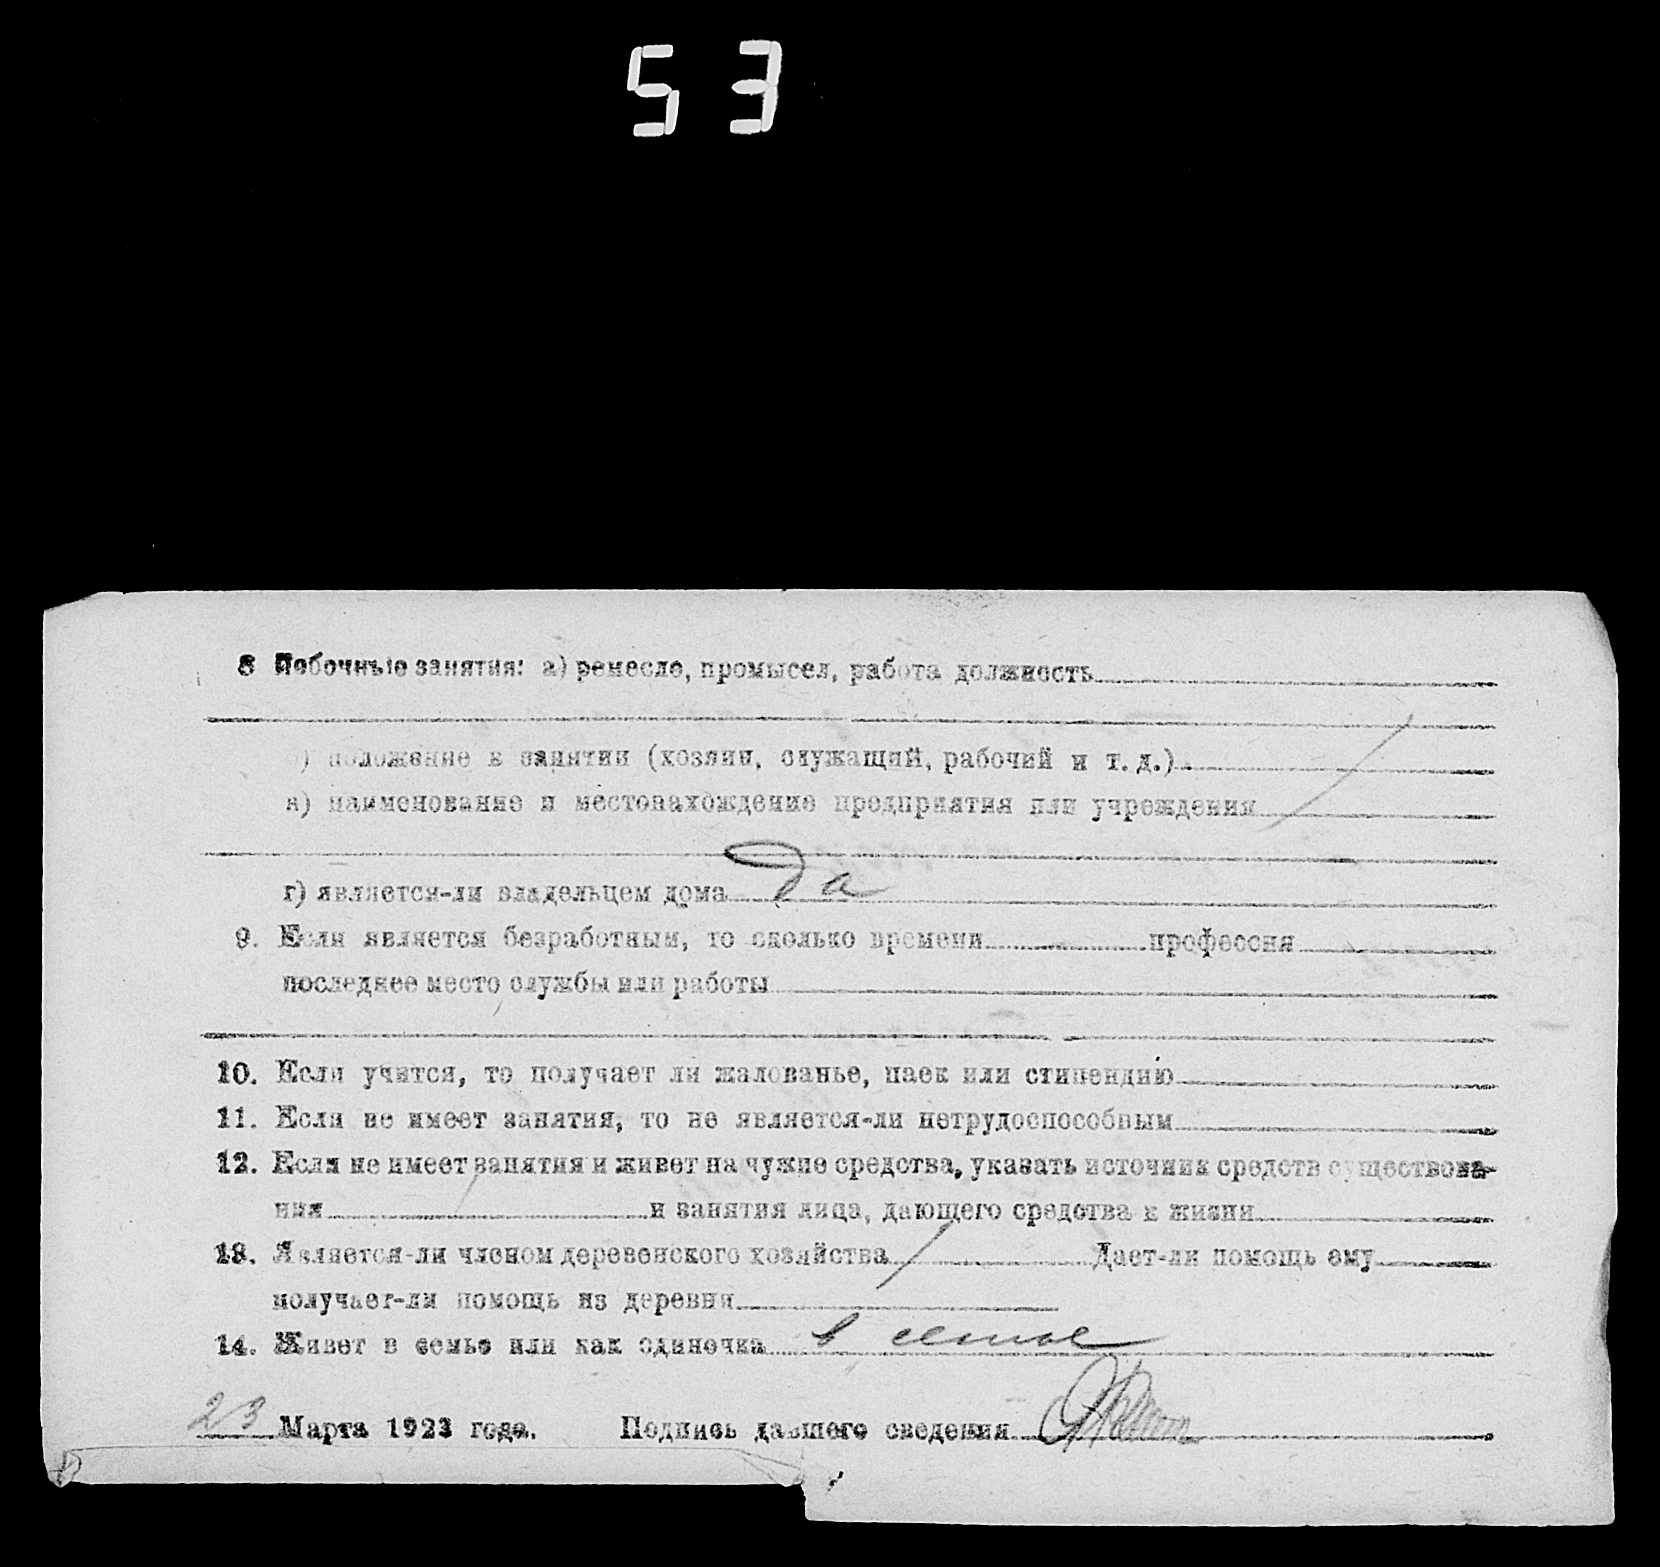 53
8 Побочные занятия: а) ремесло, промысел, работа должность
) положение в занятии (хозяин, служащий, рабочий и т. д.)
в) наименование и местонахождение предприятия или учреждения
г) является-ли владельцем дома да
9. Если является безработным, то сколько времени профессия
последнее место службы или работы
10. Если учится, то получает ли жалованье, паек или стипендию
11. Если не имеет занятия, то не является-ли нетрудоспособным
12. Если не имеет занятия и живет на чужие средства, указать источник средств существова-
ния и занятия лица, дающего средства к жизни
13. Является-ли членом деревенского хозяйства Дает-ли помощь ему
получает-ли помощь из деревни
14. Живет в семье или как одиночка в семье
23 Марта 1923 года. Подпись давшего сведения